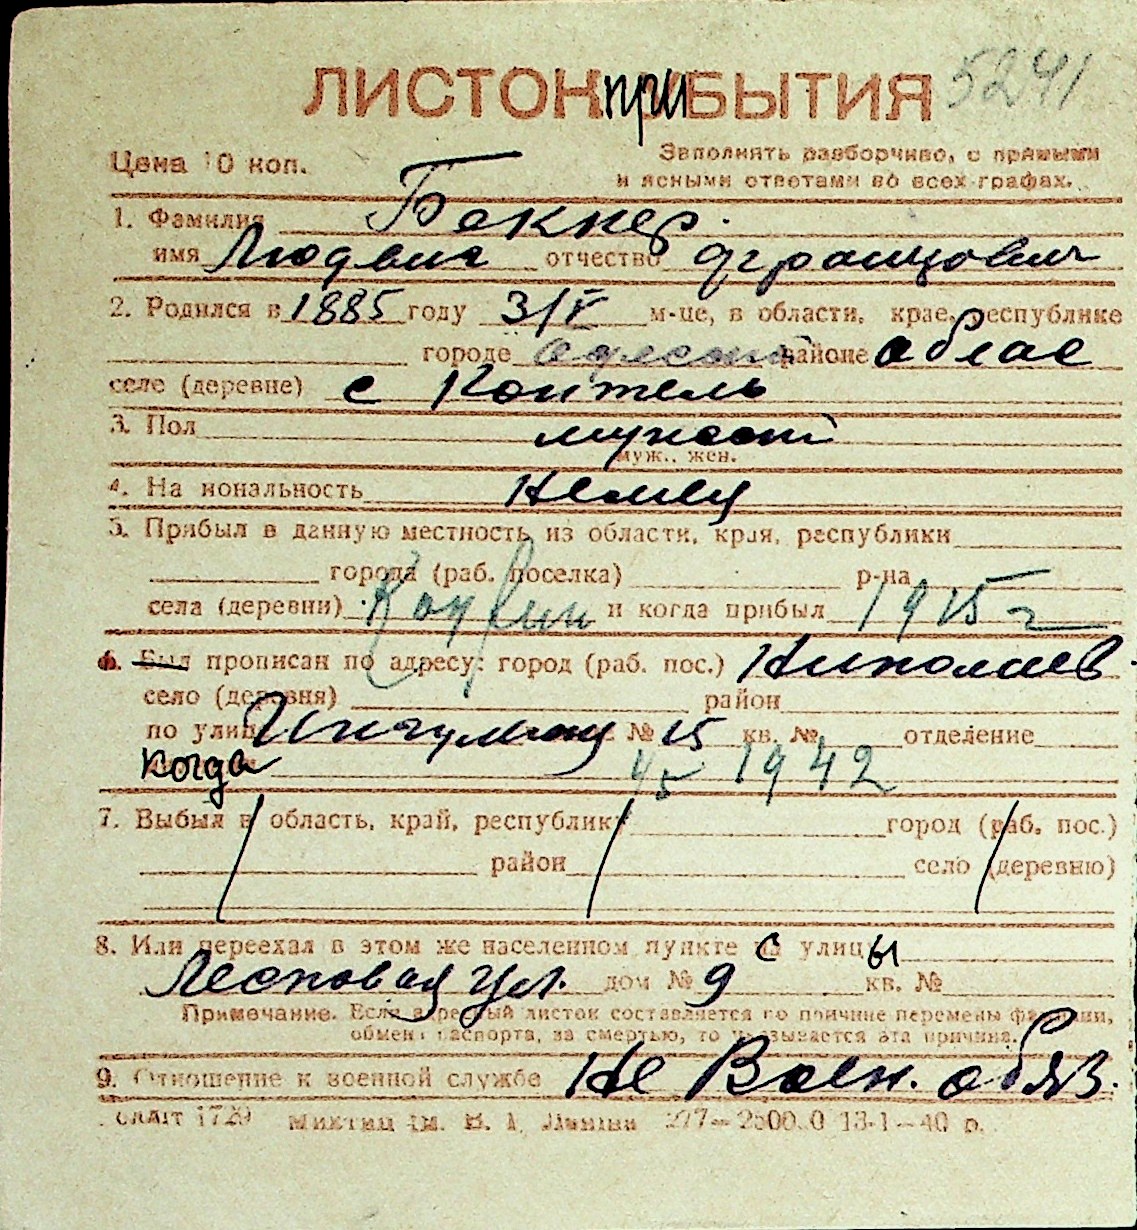 5241
ЛИСТОК при БЫТИЯ
Цена 10 коп.
Заполнять разборчиво, с прямыми
и ясными ответами во всех графах.
1. Фамилия Бекнер.
имя Людвиг отчество Францович
2. Родился в 1885 году 3/V м-це, в области, крае, республике
городе Одесской районе облас
селе (деревне) с
3. Пол мужской
муж., жен.
4. На иональность Немец
5. Прибыл в данную местность из области, края, республики
города (раб. поселка) р-на
села (деревни) и когда прибыл 1915 г
6. Был прописан по адресу: город (раб. пос.) Николаев
село (деревня) район
по улиц № 15 кв. № отделение
когда 4/5 1942
7. Выбыл в область, край, республику город (раб. пос.)
район село (деревню)
8. Или переехал в этом же населенном пункте с улицы
ул. дом № 9 кв. №
Примечание. Если адресный листок составляется по причине перемены фамилии,
обмена паспорта, за смертью, то указывается эта причина.
9. Отношение к военной службе Не Воен. обяз.
1729 им. В. И. Ленина 277— 13-1—40 р.